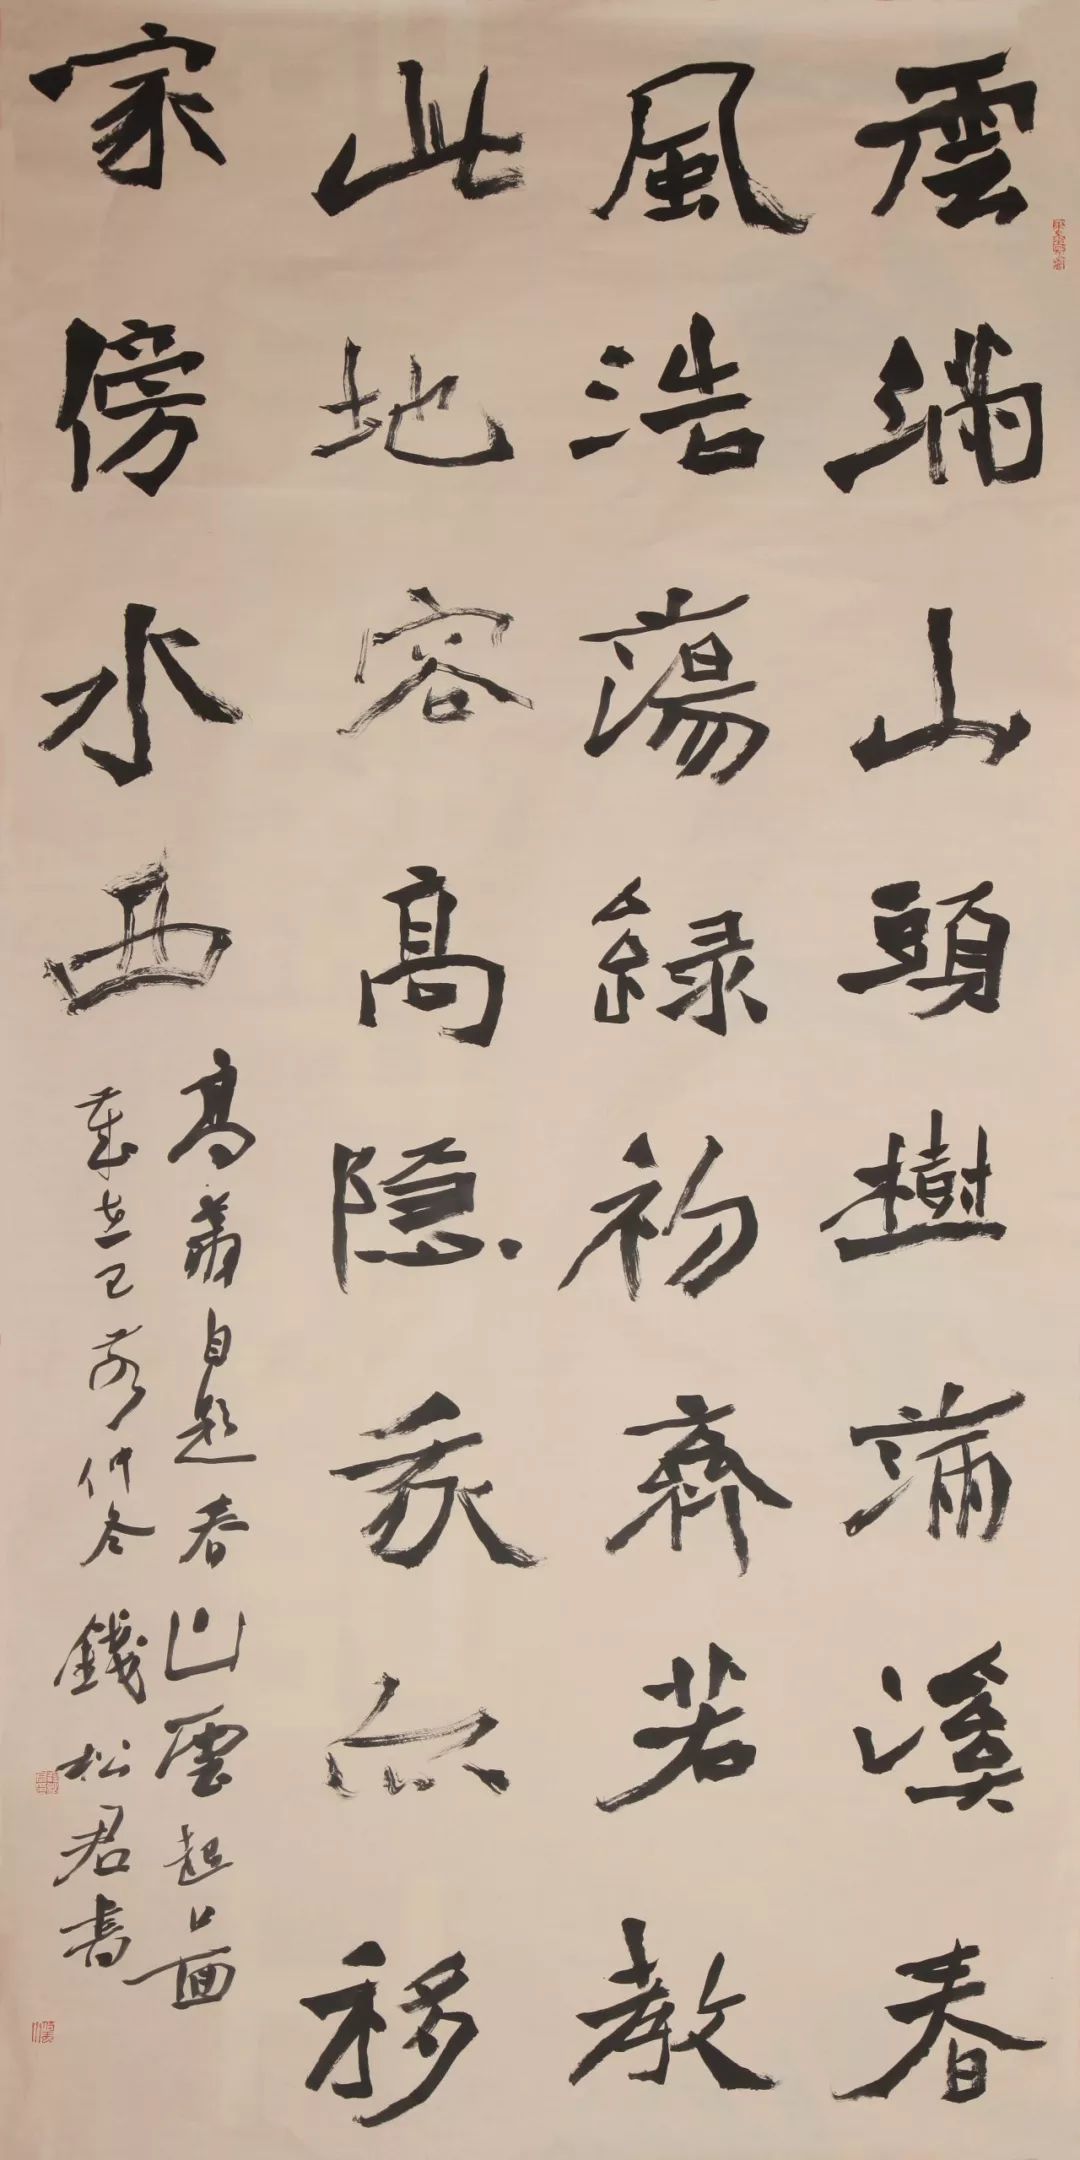 雲滿山頭樹滿溪春
風浩蕩綠初齊若教
此地容高隱我亦移
家傍水西
高自題春山雲起圖
歲仲冬錢松君書